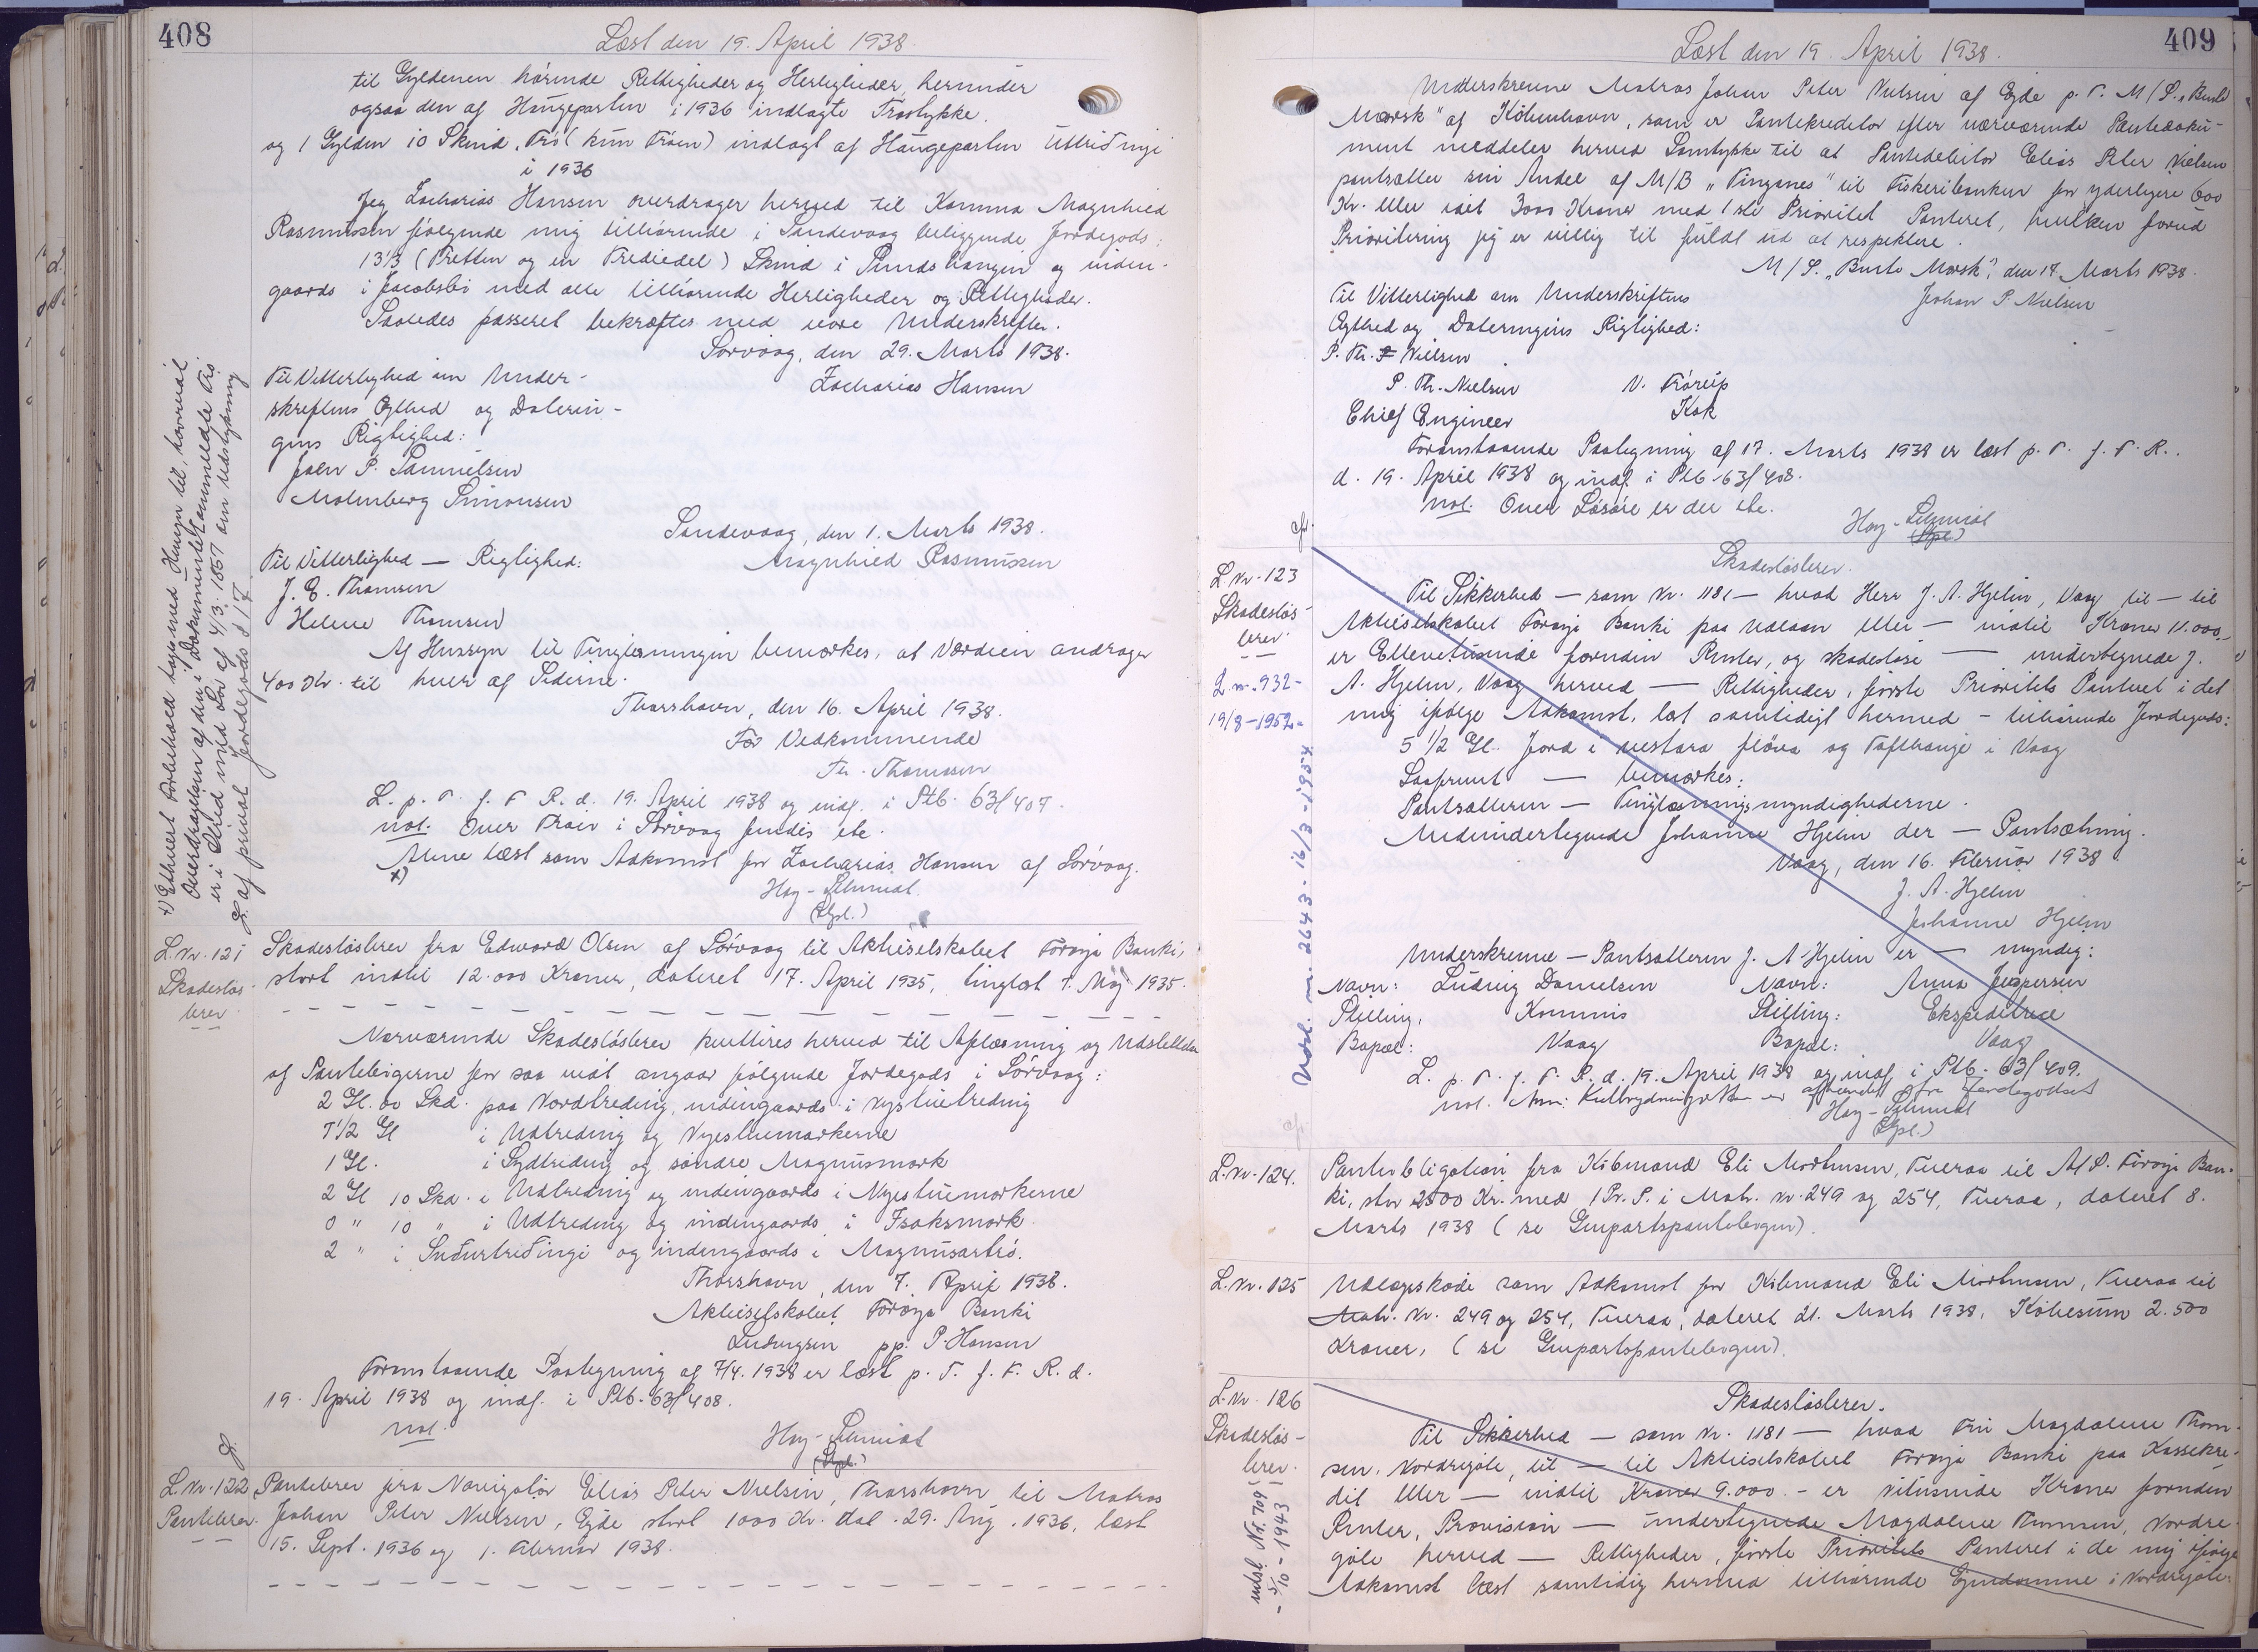 408
Læst den 19. April 1938.
til Gyldenen hørende Rettigheder og Herligheder, herunder
ogsaa den af Haugepartin i 1936 indlagte Trøstykke.
og 1 Gylden 10 Skind, Trø (kun Trøen) indlagt af Haugepartin Uttriðingi
i 1936
Jeg Zacharias Hansen overdrager herved til Kamma Magnhild
Rasmussen følgende mig tilhørende i Sandevaag beliggende Jordegods:
13 1/3 (Tretten og en Trediedel) Skind i Pundshaugin og inden-
gaards i Jacobsbø med alle tilhørende Herligheder og Rettigheder.
Saaledes passeret bekræftes med vore Underskrifter.
Sørvaag, den 29. Marts 1938.
Til Vitterlighed om Under-
Zacharias Hansen
skriftens Ægthed og Daterin-
gens Rigtighed:
Joen P. Samuelsen
Malmberg Simonsen
Sandevaag, den 1. Marts 1938.
Til Vitterlighed — Rigtighed:
Magnhild Rasmussen
J. E. Thomsen
Helene Thomsen
Af Hensyn til Tinglæsningen bemærkes, at Værdien andrager
400 Kr. til hver af Siderne.
Thorshavn, den 16. April 1938.
For Vedkommende
Th. Thomsen
L. p. T. f. F. R. d. 19. April 1938 og indf. i Ptb. 63/407.
not. Over Trøir i Sørvaag findes ete.
Alene læst som Adkomst for Zacharias Hansen af Sørvaag.
x)
Høy-Schmidt
(Spl.)
x) Ethvert Forbehold tages med Hensyn til, hvorvidt
Overdragelsen af den i Dokumentet ommeldte Trø
er i Strid med Lov af 4/3. 1857 om Udstykning
af privat Jordegods § 17.
L. Nr. 121
Skadesløs-
brev.
Skadesløsbrev fra Edward Olsen af Sørvaag til Aktieselskabet Førøya Banki,
stort indtil 12.000 Kroner, dateret 17. April 1935, tinglæst 7. Maj 1935.
Nærværende Skadesløsbrev kvitteres herved til Aflæsning og Udslettelse
af Pantebøgerne for saa vidt angaar følgende Jordegods i Sørvaag:
2 Gl. 00 Skd. paa Nordtreding, indengaards i Nystuetreding
7 1/2 Gl i Udtreding og Nyestuemarkerne
1 Gl. i Sydtreding og søndre Magnusmark
2 Gl 10 Skd. i Udtreding og indengaards i Nyestuemarkerne
0 " 10 " i Udtreding og indengaards i Isaksmark
2 " i Suðurtreðingi og indengaards i Magnusartrø.
Thorshavn, den 7. April 1938.
Aktieselskabet Førøya Banki
Ludvigsen pp. P. Hansen
Foranstaaende Paategning af 7/4. 1938 er læst p. T. f. F. R. d.
19. April 1938 og indf. i Ptb. 63/408.
not.
Høy-Schmidt
(Spl.)
L. Nr. 122
Pantebrev.
Pantebrev fra Navigatør Elias Peter Nielsen, Thorshavn til Matros
Johan Peter Nielsen, Ejde stort 1000 Kr. dat. 29. Aug. 1936, læst
15. Sept. 1936 og 1. Februar 1938.
409
Læst den 19. April 1938.
Underskrevne Matros Johan Peter Nielsen af Ejde p. T. M/S. "Bente
Mærsk" af København, som er Pantekreditor efter nærværende Pantedoku-
ment meddeler herved Samtykke til at Pantedebitor Elias Peter Nielsen
pantsætter sin Andel af M/B "Tinganes" til Fiskeribanken for yderligere 600
Kr. eller ialt 3000 Kroner med 1ste Prioritet Panteret, hvilken forud
Prioritering jeg er villig til fuldt ud at respektere.
M/S. "Bente Mærsk", den 17. Marts 1938.
Til Vitterlighed om Underskriftens
Johan P. Nielsen
Ægthed og Dateringens Rigtighed:
P. Th. Nielsen
P. Th. Nielsen V. Frórup
Chief Engineer Kok
Foranstaaende Paategning af 17. Marts 1938 er læst p. T. f. F. R.
d. 19. April 1938 og indf. i Ptb 63/408.
not. Over Løsøre er der ete.
Høy-Schmidt
(Spl.)
L Nr. 123
Skadesløs-
brev.
L. nr. 932-
19/8-1952-
Udsl. nr. 2643 - 16/3-1954
Skadesløsbrev.
Til Sikkerhed — som Nr. 1181 — hvad Herr J. A. Hjelm, Vaag til — til
Aktieselskabet Førøya Banki paa Udlaan eller — indtil Kroner 11.000,-
er Ellevetusinde foruden Renter, og skadesløse — undertegnede J.
A. Hjelm, Vaag herved — Rettigheder, første Prioritets Panteret i det
mig ifølge Adkomst, læst samtidigt hermed - tilhørende Jordegods:
5 1/2 Gl. Jord i vestara fløva og Tofthauge i Vaag
Saafremt — bemærkes:
Pantsætteren — Tinglæsningsmyndighederne.
Medundertegnede Johanne Hjelm der — Pantsætning.
Vaag, den 16. Februar 1938
J. A. Hjelm
Johanne Hjelm
Underskrevne — Pantsætteren J. A Hjelm er — myndig:
Navn: Ludvig Danielsen Navn: Anna Jespersen
Stilling: Kommis Stilling: Ekspeditrice
Bopæl: Vaag Bopæl: Vaag
L. p. T. f. F. R. d. 19. April 1938 og indf. i Ptb. 63/409.
not. Anm: Kulbrydningsretten er afhændet fra Jordegodset
Høy-Schmidt
(Spl.)
L. Nr. 124.
Panteobligation fra Købmand Eli Mortensen, Tveraa til A/S. Førøya Ban-
ki, stor 2500 Kr. med 1 Pr. P. i Matr. Nr. 249 og 254, Tveraa, dateret 8.
Marts 1938 (se Genpartspantebogen).
L. Nr. 125
Udlægsskøde som Adkomst for Købmand Eli Mortensen, Tveraa til
Matr. Nr. 249 og 254, Tveraa, dateret 21. Marts 1938, Købesum 2.500
Kroner, (se Genpartspantebogen).
L. Nr. 126
Skadesløs-
brev.
udsl. Nr. 709
- 5/10 - 1943
Skadesløsbrev.
Til Sikkerhed — som Nr. 1181 — hvad Fru Magdalene Thom-
sen, Nordregøte, til — til Aktieselskabet Førøya Banki paa Kassekre-
dit eller — indtil Kroner 9.000.- er Nitusinde Kroner foruden
Renter, Provision — undertegnede Magdalene Thomsen, Nordre-
gøte herved — Rettigheder, første Prioritets Panteret i de mig ifølge
Adkomst læst samtidig hermed tilhørende Ejendomme i Nordregøte: